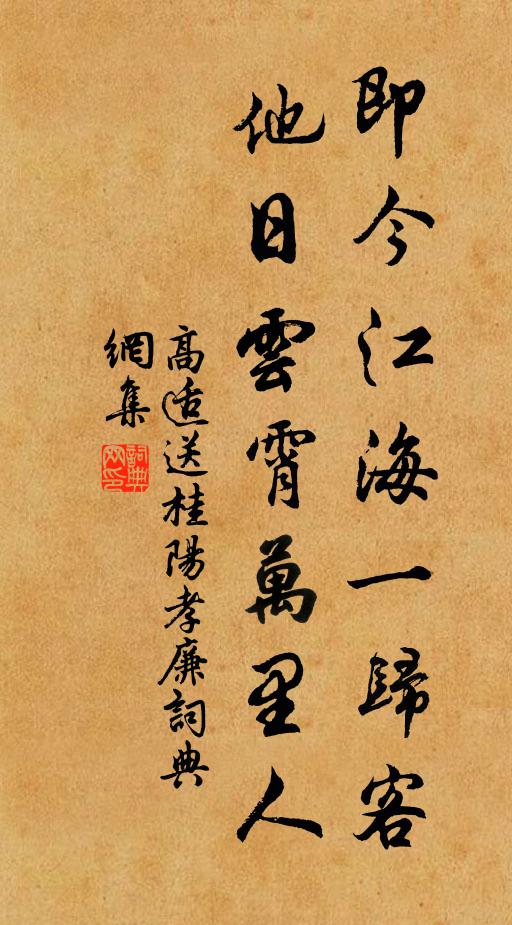 即今江海一歸客
他日雲霄萬里人
高适送桂陽孝廉詞典
網集
詞典
網印